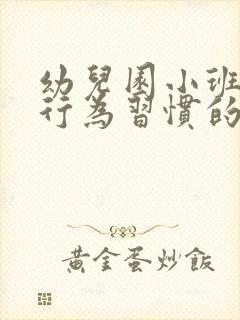 幼兒園小班
行為習慣的
黃金蛋炒飯